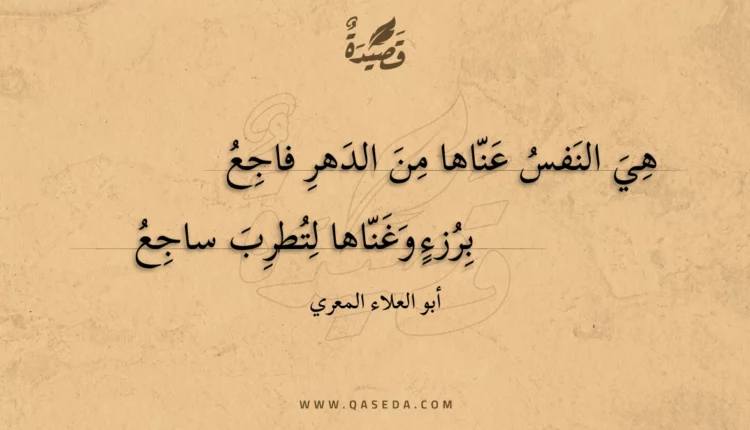 قَصِيدَةٌ
هِيَ النَفسُ عَنّاها مِنَ الدَهرِ فاجِعُ
بِرُزءٍ وَغَنّاها لِتُطرِبَ ساجِعُ
أبو العلاء المعري
WWW.QASEDA.COM